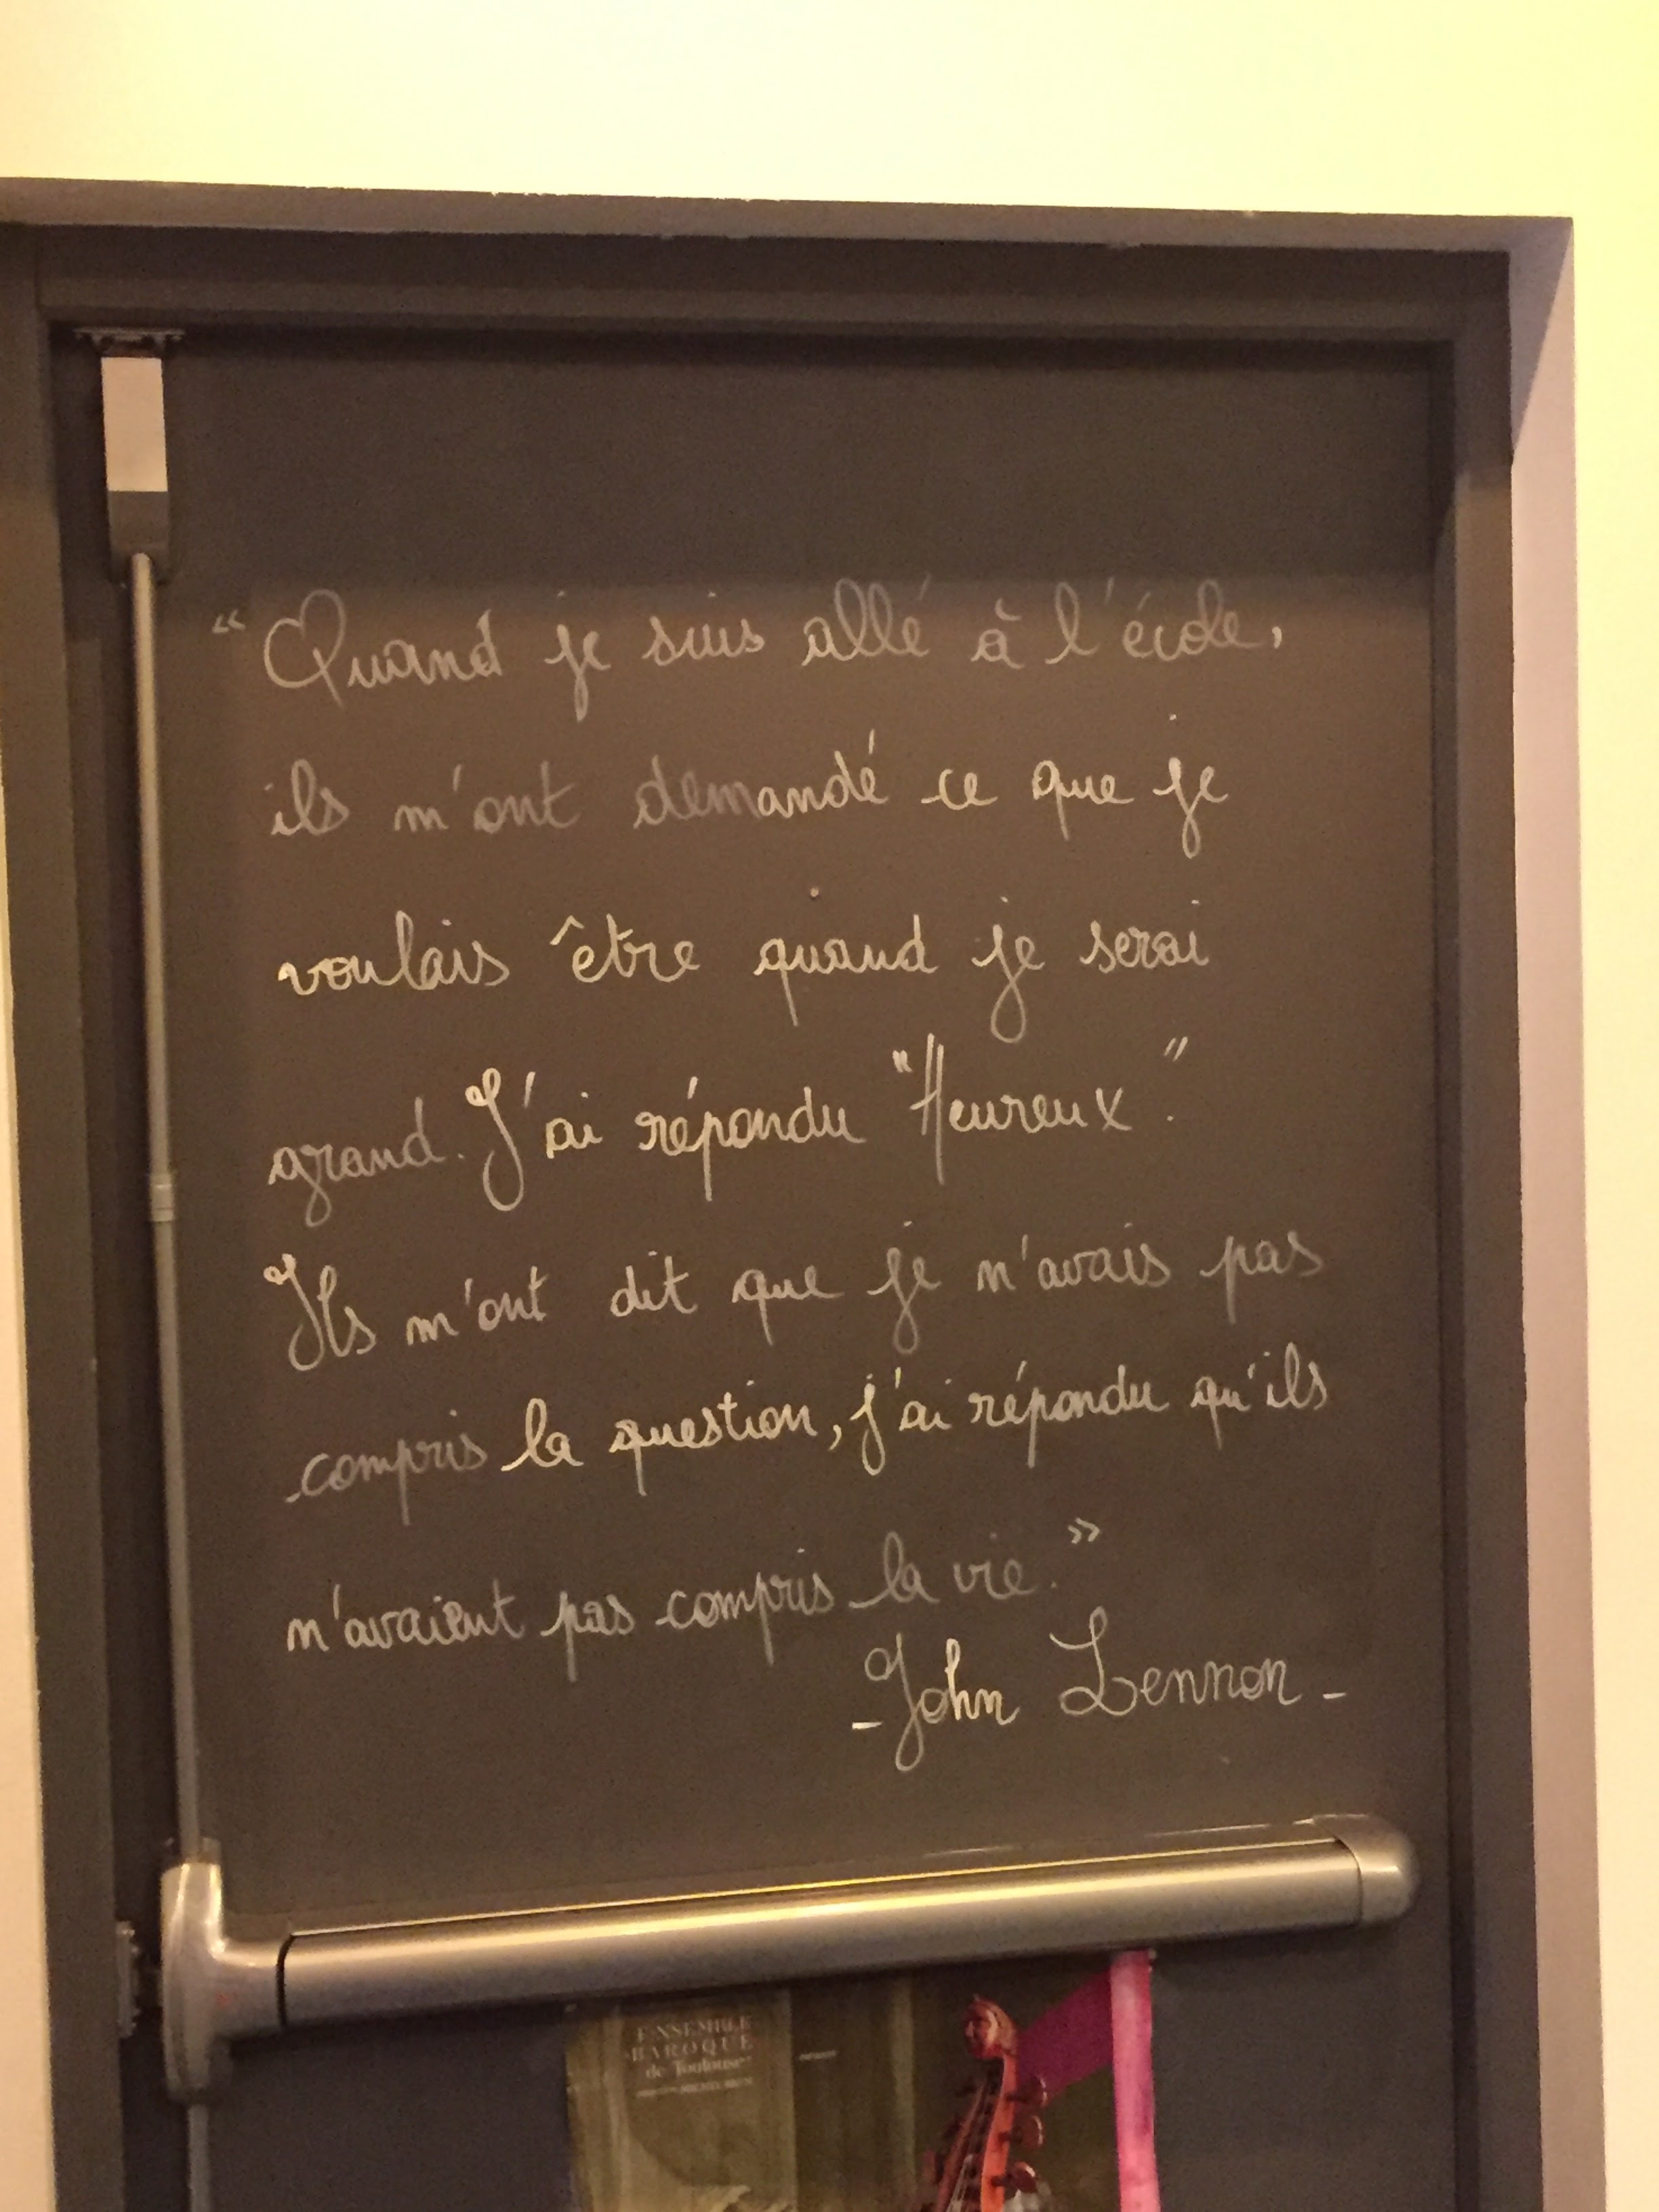 “ Quand je suis allé à l'école,
ils m'ont demandé ce que je
voulais être quand je serai
grand. J'ai répondu "Heureux".
Ils m'ont dit que je n'avais pas
compris la question, j'ai répondu qu'ils
n'avaient pas compris la vie. ”
- John Lennon -
ENSEMBLE
BAROQUE
de Toulouse